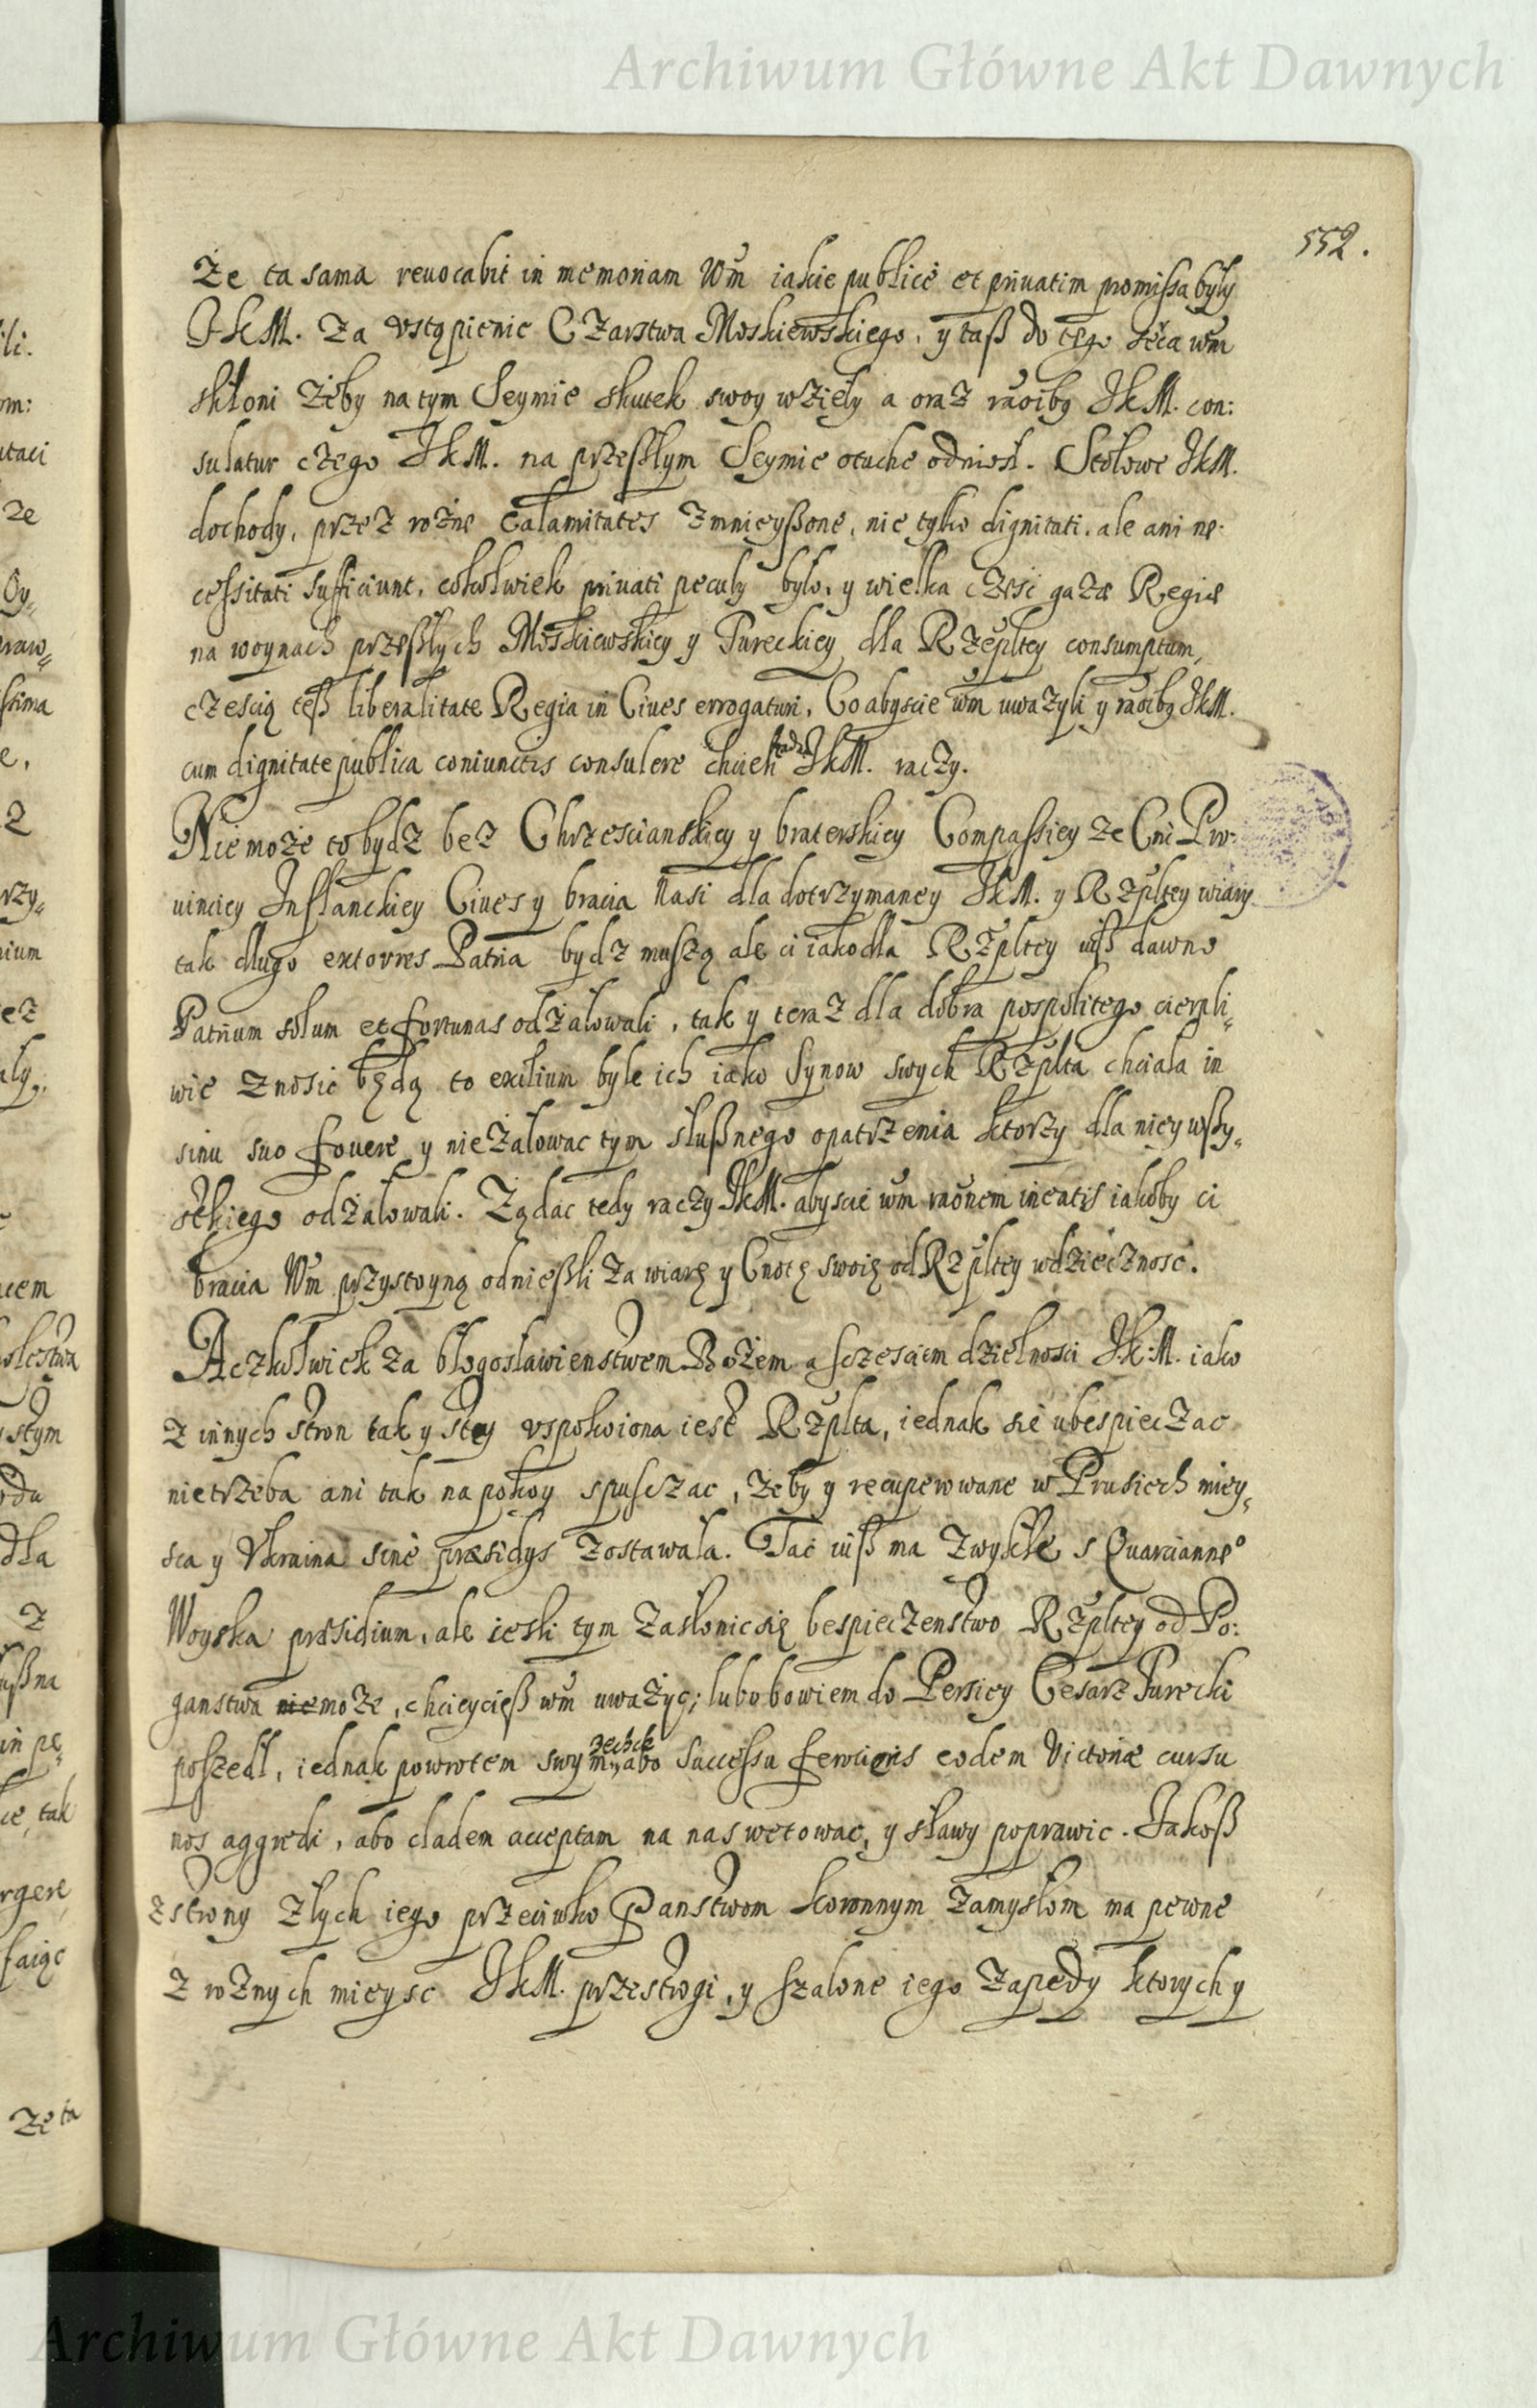 Archiwum Główne Akt Dawnych
552.
Że ta sama reuocabit in memoriam Wm iakie publicè et priuatim promissa były
JKM. za vstąpienie Czarstwa Moskiewskiego, y taß do tego serca wm
skłoni żeby na tym Seymie skutek swoy wzięły a oraz raoibg JKM. con:
sulatur czego JKM. na przeßłym Seymie otuche odniosł. Stołowe JKM.
dochody, przez rożne calamitates zmnieyßone, nie tylko dignitati, ale ani ne-
cessitati sufficiunt, cokolwiek priuati peculy było, y wielka część gazæ Regiæ
na woynach przeßłych Moskiewskiey y Tureckiey dla Rzepltey consumptum,
cżescią teß liberalitate Regia in Ciues errogatum, Co abyscie wm uważyli y raoibg JKM.
cum dignitate publica coniunctis consulere chcieli żadać JKM. raczy.
Nie może to bydz bez Chrzescianskiey y braterskiey Compassiey że Cni Pro-
uinciey Inflanckiey Ciues y bracia nasi dla dotrzymaney JKM. y Rzpltey wiary
tak długo extorres Patria bydz muszą ale ci iako dla Rzpltey iuß dawno
Patrium solum et fortunas odżałowali, tak y teraz dla dobra pospolitego cierpli,
wie znosić będą to exilium byle ich iako synow swych Rzplta chciała in
sinu suo fouere y nie żałowac tym słußnego opatrzenia ktorzy dla niey wßy,
stkiego odżałowali. Żądać tedy raczy JKM. abyscie wm raonem ineatis iakoby ci
bracia Wm przystoyną odnießli za wiarę y Cnotę swoię od Rzpltey wdzięcznosć.
Aczkolwiek za błogosławienstwem Bożem a sczesciem dzielnosci JK.M. iako
z innych stron tak y stey vspokoiona iest Rzplta, iednak się ubespieczac
nietrzeba ani tak na pokoy spusczac, żeby y recuperowane w Prusiech miey,
sca y Vkraina sine præsidys zostawała. Tać iuß ma zwykłe s Quarcianneo
Woyska præsidium, ale iesli tym zasłonic się bespieczenstwo Rzpltey od Po:
ganstwa nie może, chcieycieß wm uważyc; lubo bowiem do Persiey Cesarz Turecki
poszedł, iednak powrotem swym, zechce abo successu ferocioris eodem Victoriæ cursu
nos aggredi, abo cladem acceptam na nas wetowac, y sławy poprawic. Jakoß
z strony złych iego przeciwko Panstwom koronnym zamysłom ma pewne
z rożnych mieysc JKM. przestrogi, y szalone iego zapędy ktorych y
Archiwum Główne Akt Dawnych